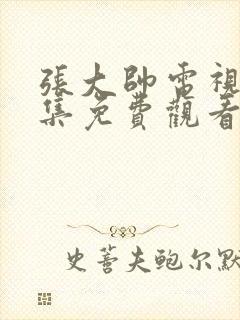 張大帥電視
集免費觀看
史蒂夫鲍尔默